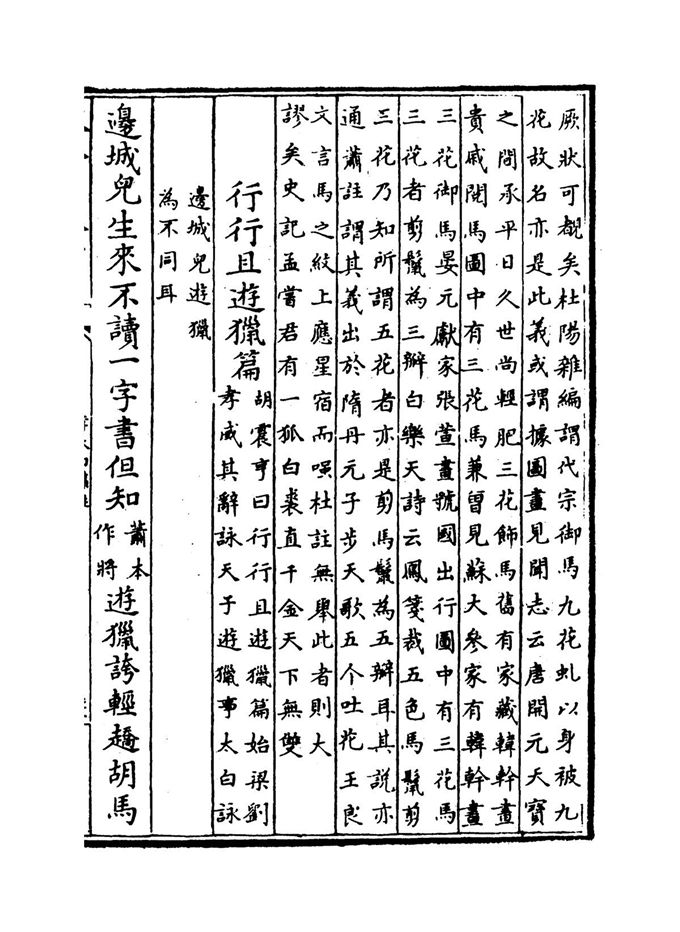 厥狀可覩矣杜陽雜編謂代宗御馬九花虬以身被九
花故名亦是此義或謂據圖畫見聞志云唐開元天寶
之間承平日久世尚輕肥三花飾馬舊有家藏韓幹畫
貴戚閱馬圖中有三花馬兼曽見蘇大叅家有韓幹畫
三花御馬晏元獻家張萱畫虢國出行圖中有三花馬
三花者剪鬃為三辮白樂天詩云鳳箋裁五色馬鬃剪
三花乃知所謂五花者亦是剪馬鬃為五辮耳其說亦
通蕭註謂其義出於隋丹元子步天歌五个吐花王良
文言馬之紋上應星宿而嗤杜註無舉此者則大
謬矣史記孟嘗君有一狐白裘直千金天下無雙
行行且遊獵篇
胡震亨曰行行且遊獵篇始梁劉
孝威其辭詠天子遊獵事太白詠
邊城兒遊獵
為不同耳
邊城兒生來不讀一字書但知蕭本作將遊獵誇輕趫胡馬